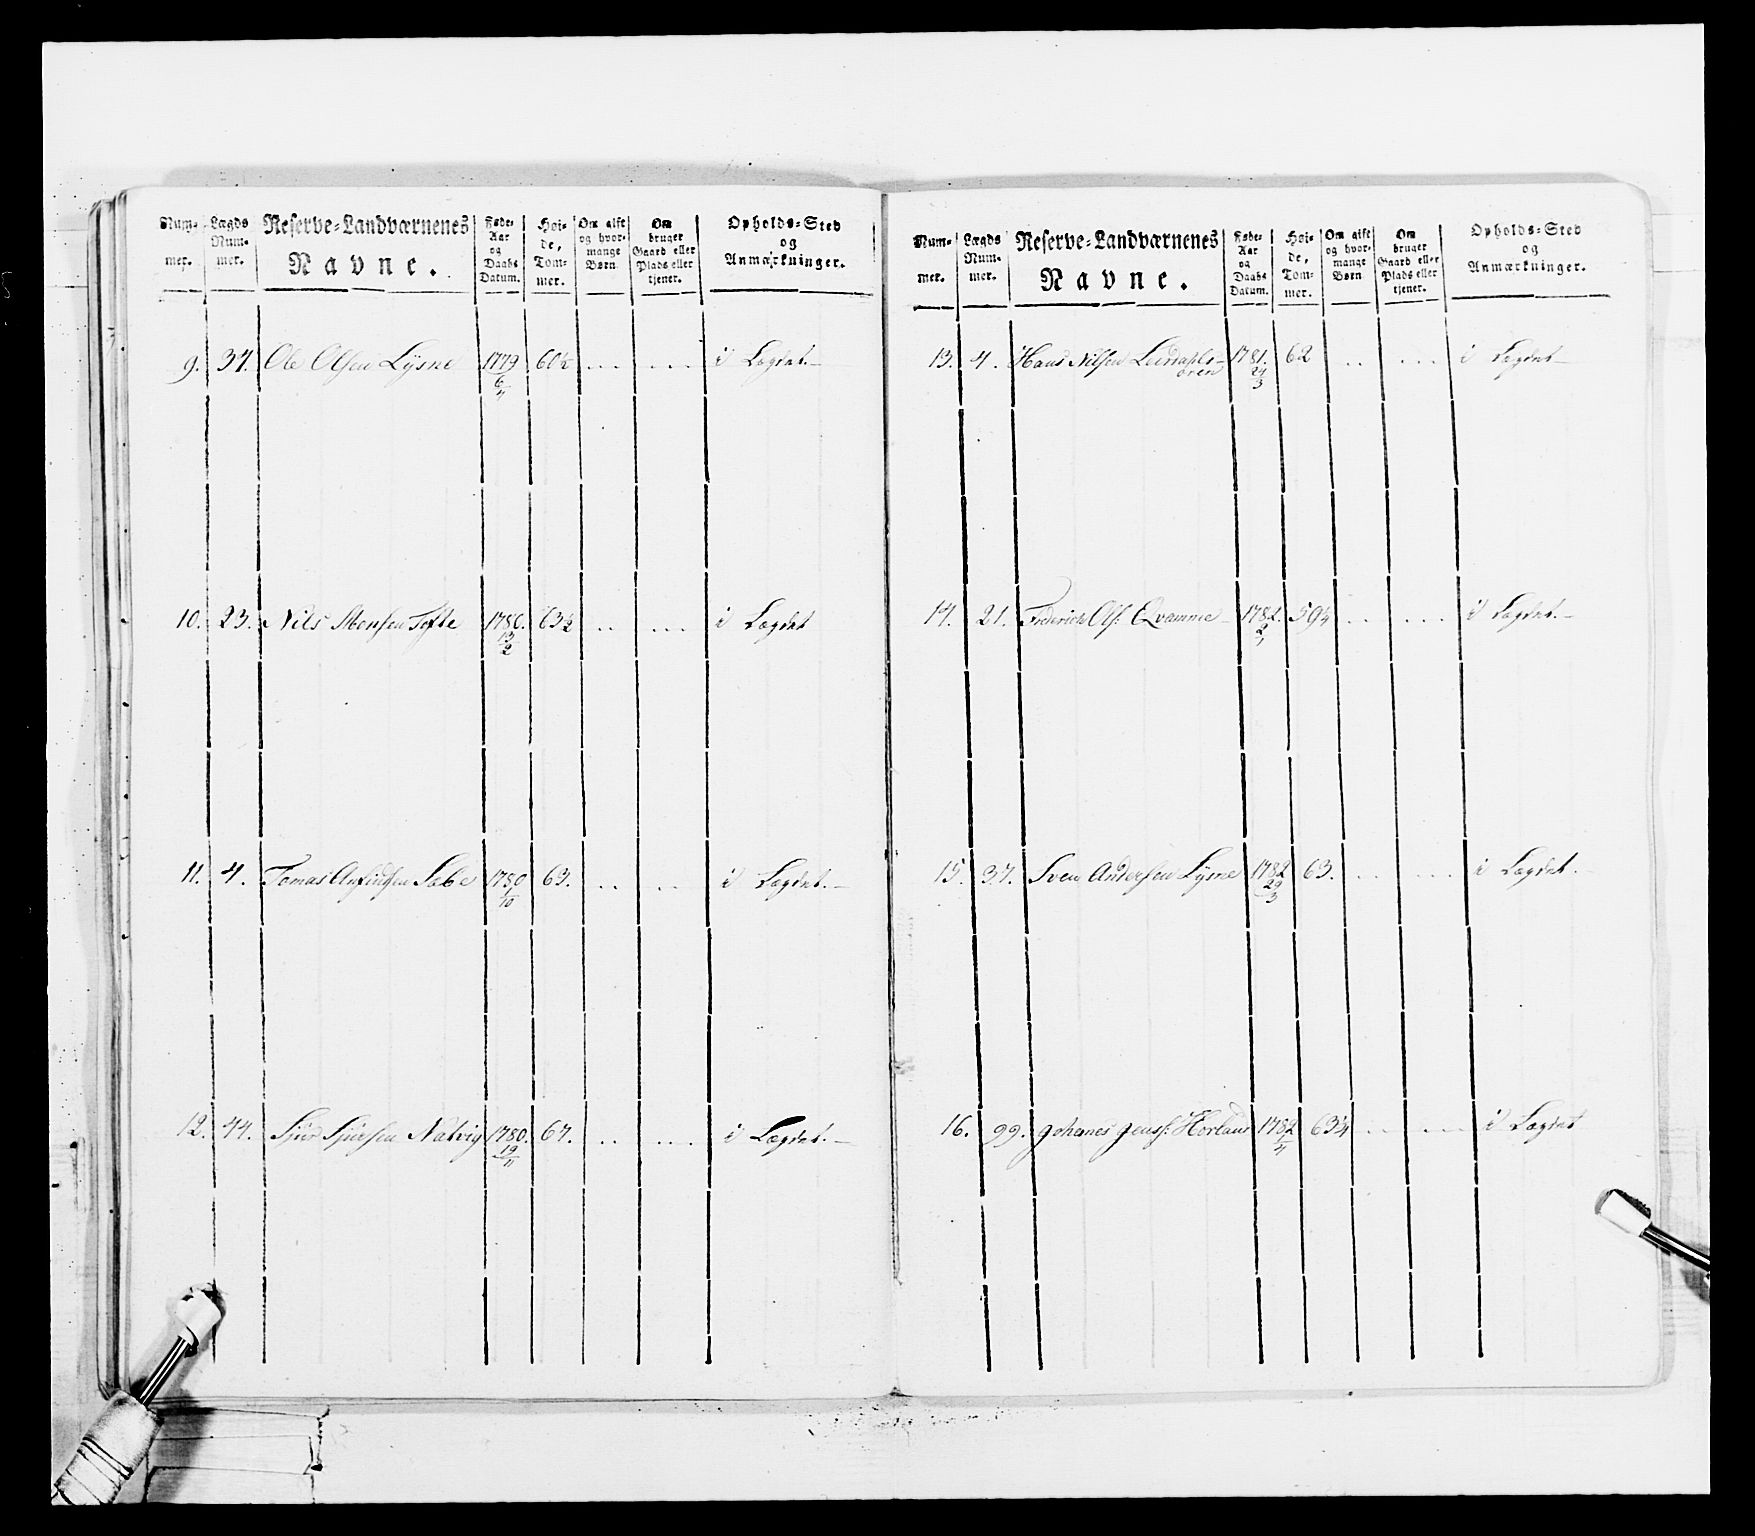 Num-
mer.
Lægds
Num-
mer.
Reserve-Landværnenes
Navne.
Føde-
Aar
og
Daabs
Datum.
Høi-
de,
Tom-
mer.
Om gift
og hvor-
mange
Børn.
Om
bruger
Gaard eller
Plads eller
tjener.
Opholds-Sted
og
Anmærkninger.
9. 37. Ole Olsen Lysne 1779 6/4 60½ .. ... i Lægdet. —
10. 23. Nils Monsen Tofte 1780. 13/2 63½ .. ... i Lægdet
11. 4. Tomas Anfindsen Sæbe 1780 1/10 63. .. .. i Lægdet. —
12. 44. Sjur Sjursen Natvig 1780. 19/11 67. .. ... i Lægdet. —
Num-
mer.
Lægds
Num-
mer.
Reserve-Landværnenes
Navne.
Føde-
Aar
og
Daabs
Datum.
Høi-
de,
Tom-
mer.
Om gift
og hvor-
mange
Børn
Om
bruger
Gaard eller
Plads eller
tjener.
Opholds-Sted
og
Anmærkninger.
13. 4. Hans Nilsen Leirdahls-
ören 1781. 24/3 62 .. ... i Lægdet —
14. 21. Friderich Ols: Qvamme 1782. 2/1 59¼ ... ... i Lægdet. —
15. 37. Sven Andersen Lysne 1782 29/3 63. ... ... i Lægdet. —
16. 99. Johanes Jenss: Horland 1782 1/4 63¼ .. ... i Lægdet